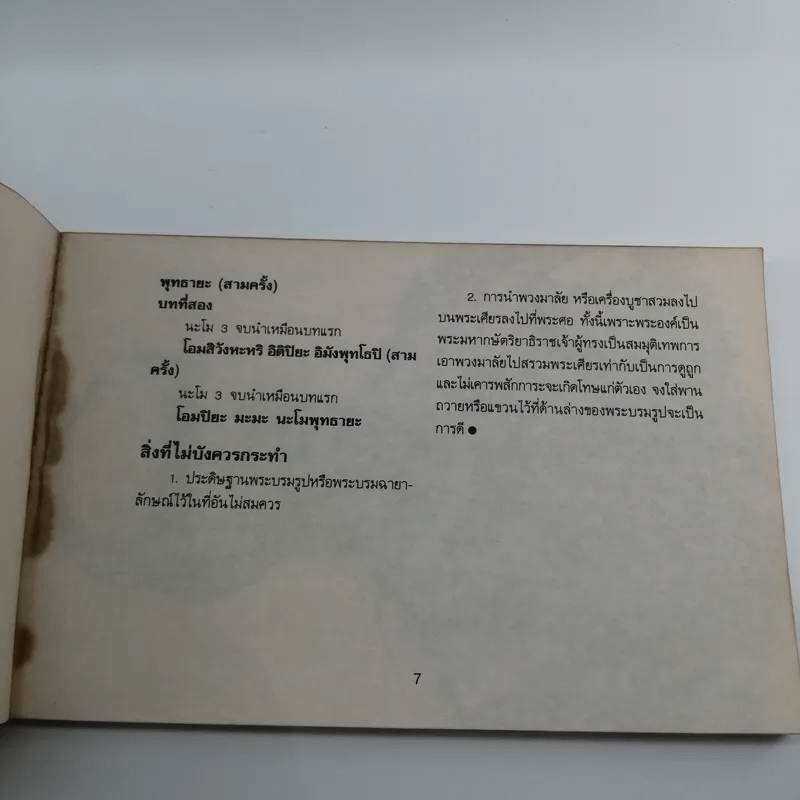 พุทธายะ (สามครั้ง)
บทที่สอง
นะโม 3 จบนำเหมือนบทแรก
โอมสิวังหะหริ อิติปิยะ อิมังพุทโธปิ (สาม
ครั้ง)
นะโม 3 จบนำเหมือนบทแรก
โอมปิยะ มะมะ นะโมพุทธายะ
สิ่งที่ไม่บังควรกระทำ
1. ประดิษฐานพระบรมรูปหรือพระบรมฉายา-
ลักษณ์ไว้ในที่อันไม่สมควร
2. การนำพวงมาลัย หรือเครื่องบูชาสวมลงไป
บนพระเศียรลงไปที่พระศอ ทั้งนี้เพราะพระองค์เป็น
พระมหากษัตริยาธิราชเจ้าผู้ทรงเป็นสมมุติเทพการ
เอาพวงมาลัยไปสรวมพระเศียรเท่ากับเป็นการดูถูก
และไม่เคารพสักการะจะเกิดโทษแก่ตัวเอง จงใส่พาน
ถวายหรือแขวนไว้ที่ด้านล่างของพระบรมรูปจะเป็น
การดี ●
7